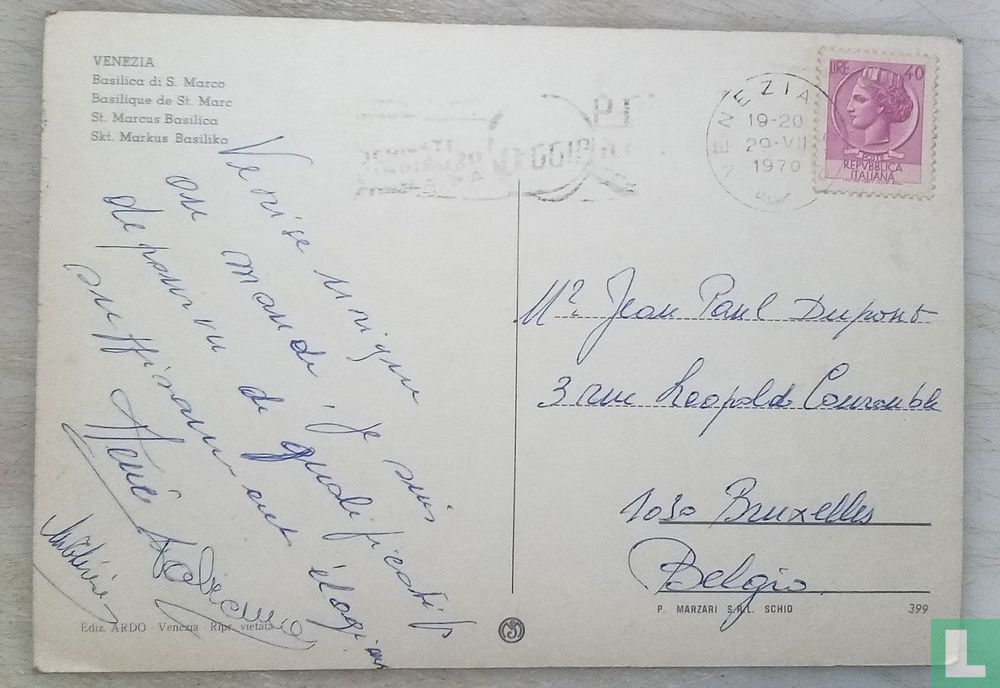 VENEZIA
Basilica di S. Marco
Basilique de St. Marc
St. Marcus Basilica
Skt. Markus Basilika
VENEZIA
19-20
29-VII
1970
LIRE 40
POSTE
REPVBBLICA
ITALIANA
Venise unique
au monde, je suis
dépourvu de qualificatifs
suffisamment élogieux
Mr Jean Paul Dupont
3 rue Léopold Courouble
1030 Bruxelles
Belgio
Ediz. ARDO - Venezia - Ripr. vietata
P. MARZARI S.R.L. SCHIO
399
L